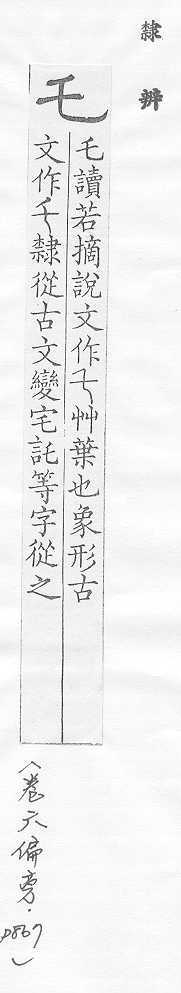 隸辨
乇
乇讀若摘說文作乇艸葉也象形古
文作乇隸從古文變宅託等字從之
(卷六偏旁·p867)